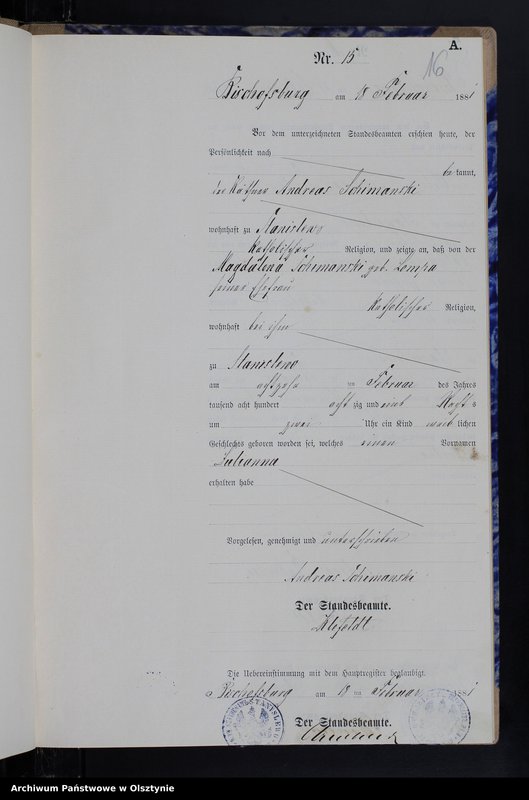 A.
Nr. 15
16
Bischofsburg am 18 Februar 1881
Vor dem unterzeichneten Standesbeamten erschien heute, der
Persönlichkeit nach
be kannt,
der Käthner Andreas Schimanski
wohnhaft zu Stanislewo
katholischer Religion, und zeigte an, daß von der
Magdalena Schimanski geb. Lompa
seiner Ehefrau
katholischer Religion,
wohnhaft bei ihm
zu Stanislewo
am achtzehn im Februar des Jahres
tausend acht hundert acht zig und eins Nachts
um zwei Uhr ein Kind weib lichen
Geschlechts geboren worden sei, welches einen Vornamen
Julianna
erhalten habe
Vorgelesen, genehmigt und unterschrieben
Andreas Schimanski
Der Standesbeamte.
Die Uebereinstimmung mit dem Hauptregister beglaubigt.
Bischofsburg am 18 im Februar 1881
Der Standesbeamte.
Archiwum Państwowe w Olsztynie